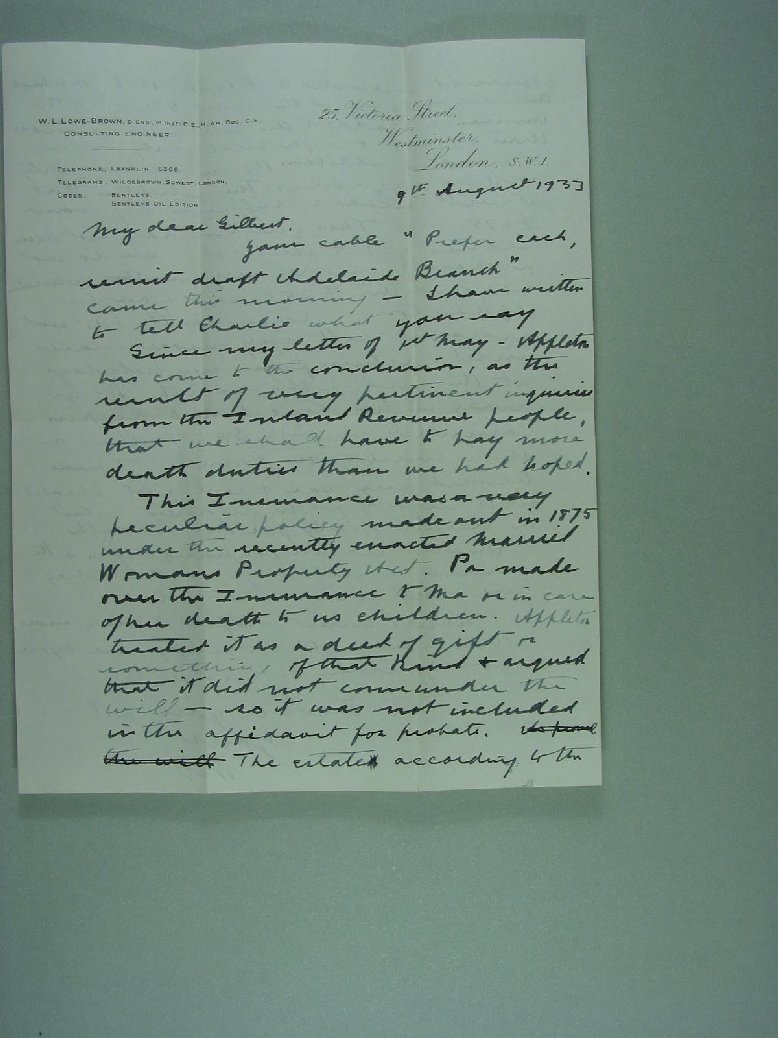 W. L. LOWE-BROWN, D.ENG., M.INST.C.E., M.AM.SOC.C.E.
CONSULTING ENGINEER.
TELEPHONE, FRANKLIN 6308.
TELEGRAMS, WILOEBROWN, SOWEST, LONDON.
CODES. BENTLEYS
BENTLEYS OIL EDITION
25, Victoria Street,
Westminster,
London, S.W.1.
9th August 1933
My dear Gilbert.
Your cable "Prefer cash,
remit draft Adelaide Branch"
came this morning - I have written
to tell Charlie what you say
Since my letter of 1st May - Appleton
has come to the conclusion, as the
result of very pertinent inquiries
from the Inland Revenue people,
that we shall have to pay more
death duties than we had hoped.
This Insurance was a very
peculiar policy made out in 1875
under the recently enacted Married
Womans Property Act. Pa made
over the Insurance to Ma or in case
of her death to us children. Appleton
treated it as a deed of gift or
something of that kind & argued
that it did not come under the
will - so it was not included
in the affidavit for probate.
the will The estate according to the